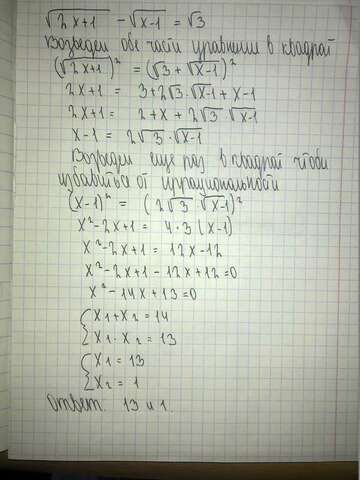 √2x+1 - √x-1 = √3
Возведем обе части уравнения в квадрат
(√2x+1)² = (√3 + √x-1)²
2x+1 = 3+2√3·√x-1 + x-1
2x+1 = 2+x+2√3 √x-1
x-1 = 2√3·√x-1
Возведем еще раз в квадрат чтобы
избавиться от иррациональности
(x-1)² = (2√3 √x-1)²
x²-2x+1 = 4·3 (x-1)
x²-2x+1 = 12x-12
x²-2x+1-12x+12=0
x²-14x+13=0
{x1+x2=14
x1·x2=13
{x1=13
x2=1
Ответ: 13 и 1.